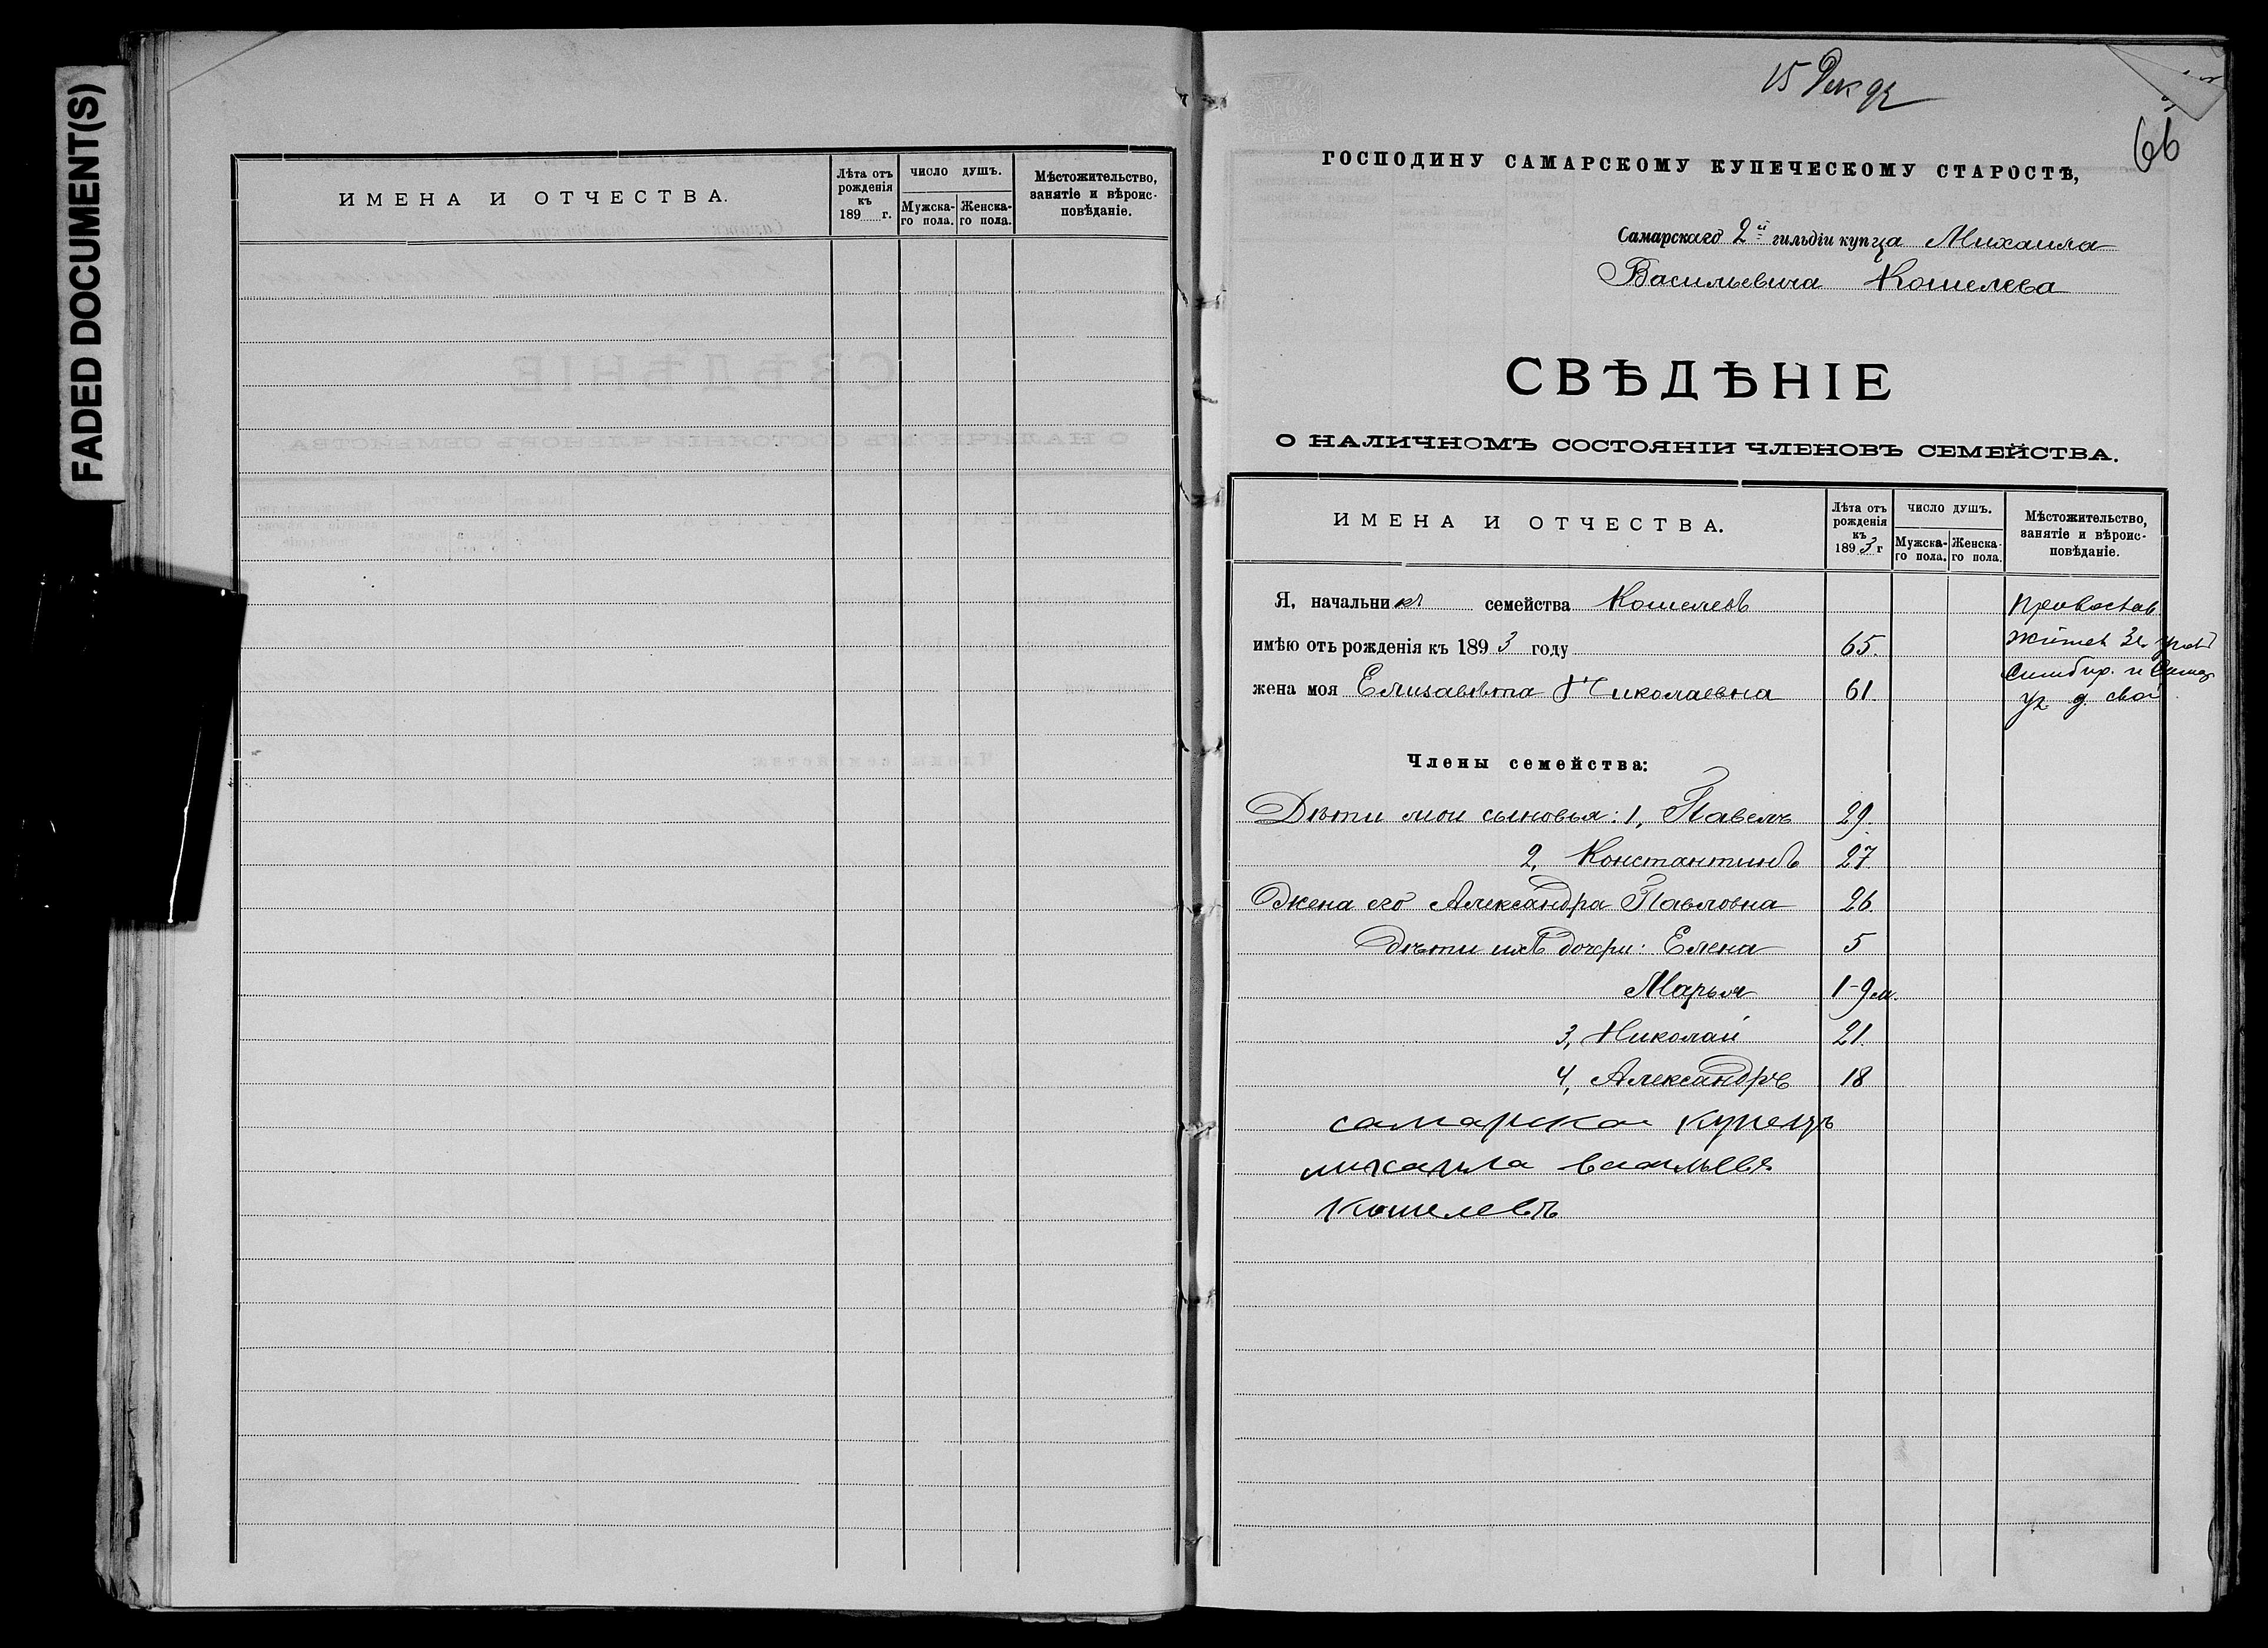 FADED DOCUMENT(S)
ИМЕНА И ОТЧЕСТВА.
Лѣта отъ рожденія къ 189 г.
ЧИСЛО ДУШЪ.
Мужска-го пола.
Женска-го пола.
Мѣстожительство, занятіе и вѣроис-повѣданіе.
15 Дек 92
66
ГОСПОДИНУ САМАРСКОМУ КУПЕЧЕСКОМУ СТАРОСТѢ,
Самарскаго 2й гильдіи купца Михаила
Васильевича Кошелева
СВѢДѢНІЕ
О НАЛИЧНОМЪ СОСТОЯНІИ ЧЛЕНОВЪ СЕМЕЙСТВА.
ИМЕНА И ОТЧЕСТВА.
Лѣта отъ рожденія къ 1893 г
ЧИСЛО ДУШЪ.
Мужска-го пола.
Женска-го пола.
Мѣстожительство, занятіе и вѣроис-повѣданіе.
Я, начальникъ семейства Кошелевъ
имѣю отъ рожденія къ 1893 году 65.
жена моя Елизавѣта Николаевна 61.
Православ
Симбир. и Самар
у. д. свой
Члены семейства:
Дѣти мои сыновья: 1, Павелъ 29.
2, Константинъ 27
Жена его Александра Павловна 26.
Дѣти ихъ дочери: Елена 5
Марья 1-9 м.
3, Николай 21.
4, Александръ 18
самарской купецъ
михаила васильевъ
кошелевъ